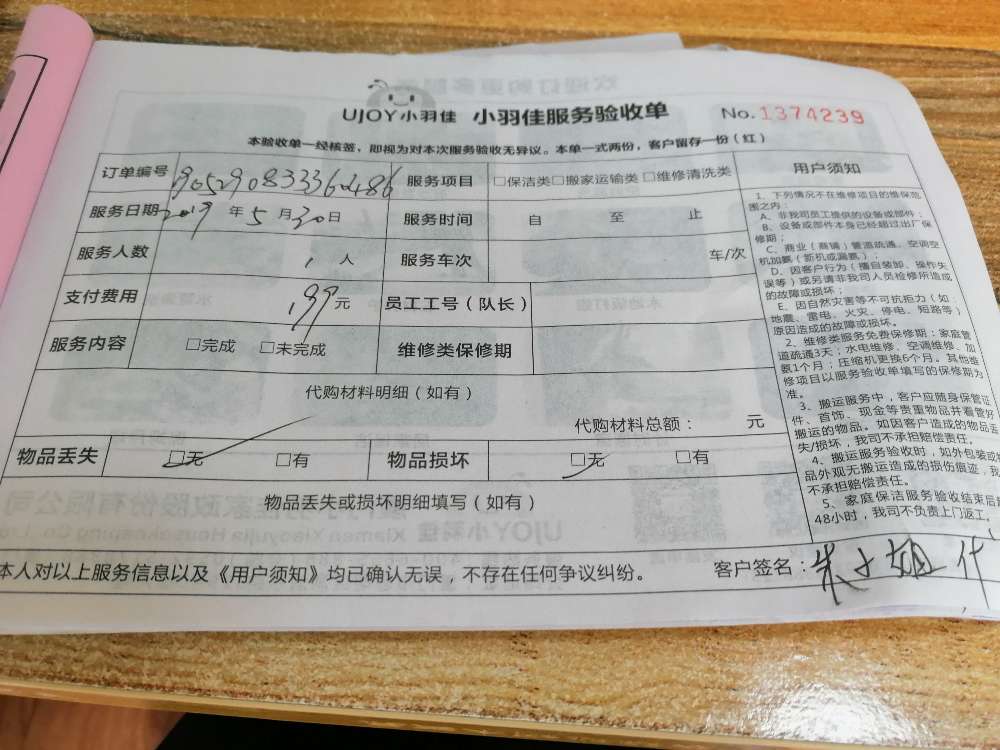 UJOY小羽佳 小羽佳服务验收单 No.1374239
本验收单一经核签，即视为对本次服务验收无异议。本单一式两份，客户留存一份（红）
订单编号 服务项目 □保洁类□搬家运输类 □维修清洗类
服务日期 2019 年 5 月 30 日 服务时间 自 至 止
服务人数 1 人 服务车次 车/次
支付费用 199 元 员工工号（队长）
服务内容 □完成 □未完成 维修类保修期
代购材料明细（如有）
代购材料总额： 元
物品丢失 □无 □有 物品损坏 □无 □有
物品丢失或损坏明细填写（如有）
本人对以上服务信息以及《用户须知》均已确认无误，不存在任何争议纠纷。 客户签名：
用户须知
1、下列情况不在维修项目的维保范
围之内：
A、非我司员工提供的设备或部件；
B、设备或部件本身已经超过出厂保
修期；
C、商业（商铺）管道疏通、空调空
机加氨（新机或漏氨）；
D、因客户行为（擅自装卸、操作失
误等）或另请非我司人员检修所造成
的故障或损坏；
E、因自然灾害等不可抗拒力（如：
地震、雷电、火灾、停电、短路等）
原因造成的故障或损坏。
2、维修类服务免费保修期：家庭管
道疏通3天；水电维修、空调维修、加
氨1个月；压缩机更换6个月。其他维
修项目以服务验收单填写的保修期为
准。
3、搬运服务中，客户应随身保管证
件、首饰、现金等贵重物品并看管好
搬运的物品。如因客户造成的物品丢
失/损坏，我司不承担赔偿责任。
4、搬运服务验收时，如外包装或物
品外观无搬运造成的损伤痕迹，我
不承担赔偿责任。
5、家庭保洁服务验收结束后超
48小时，我司不负责上门返工。